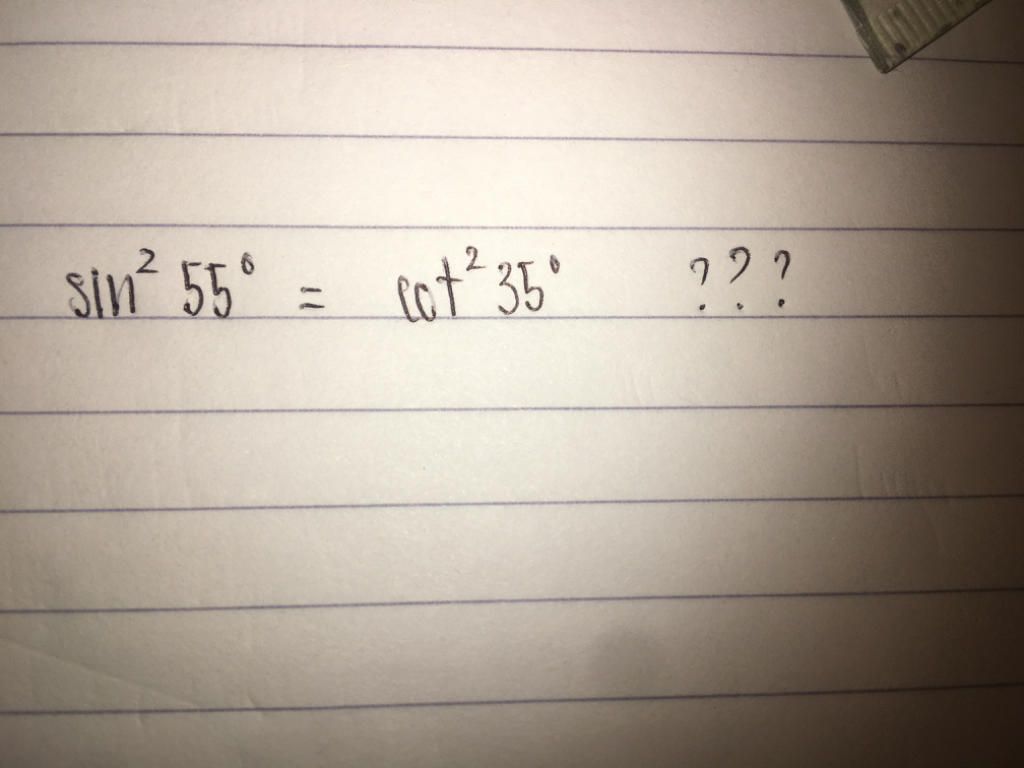 sin² 55° = cot² 35° ???